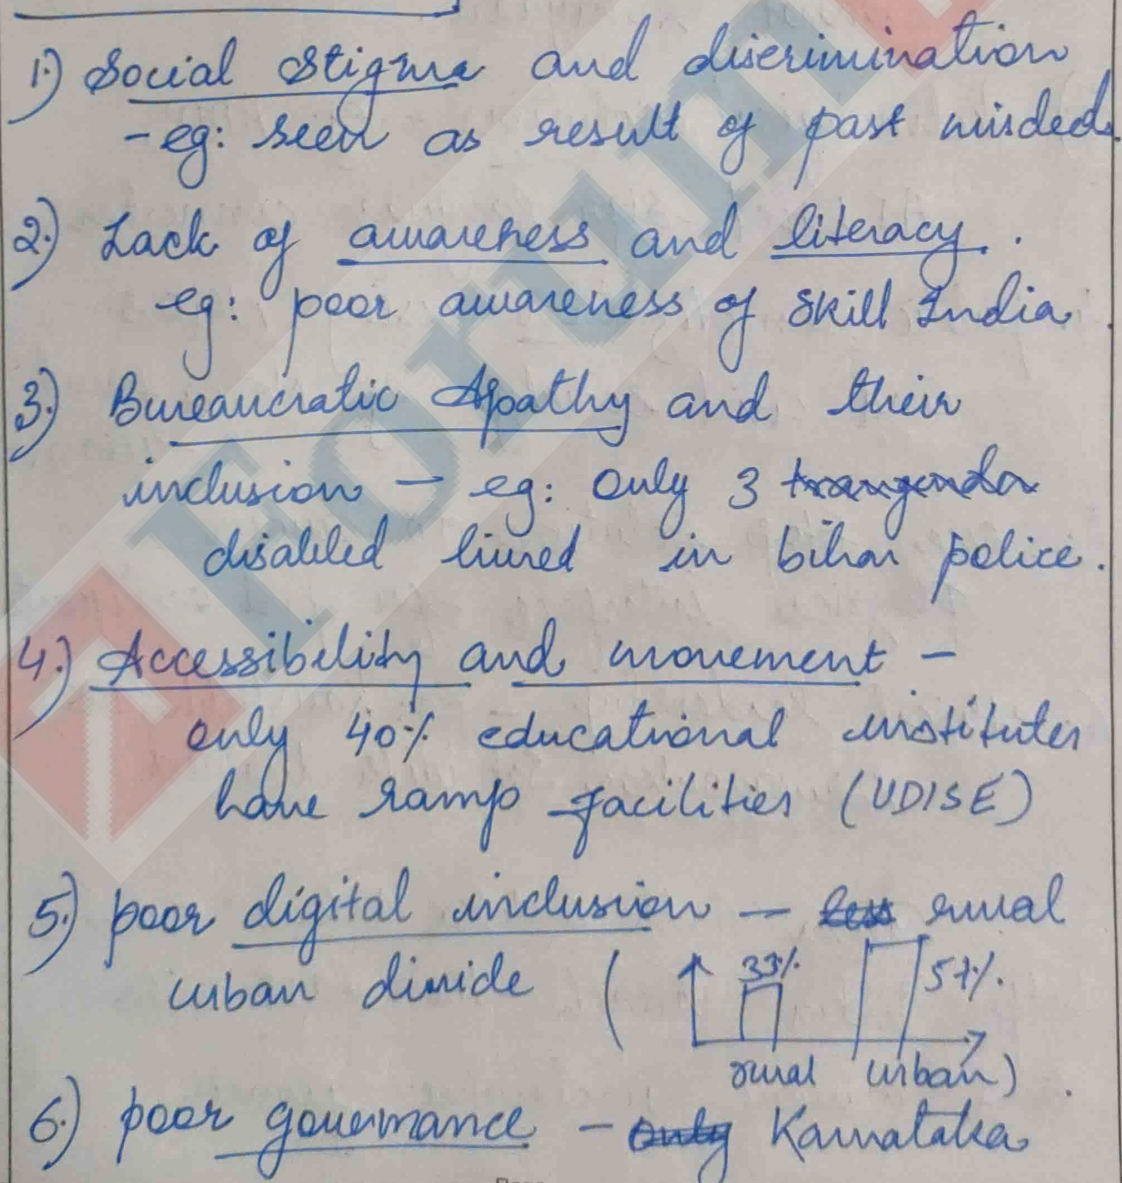 1.) Social stigma and discrimination
- eg: seen as result of past misdeeds.
2.) Lack of awareness and literacy.
eg: poor awareness of Skill India.
3.) Bureaucratic Apathy and their
inclusion - eg: Only 3 trangender
disabled hired in bihar police.
4.) Accessibility and movement -
only 40% educational institutes
have ramp facilities (UDISE)
5.) poor digital inclusion - less rural
urban divide ( 33% 57%.
rural urban)
6.) poor governance - only Karnataka
Forum